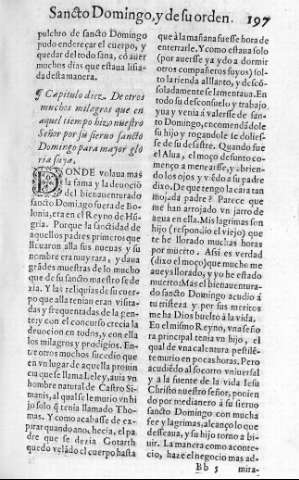 Sancto Domingo, y de su orden. 197
pulchro de sancto Domingo
pudo endereçar el cuerpo, y
quedar del todo sana, cõ auer
muchos dias que estaua lisia-
da desta manera.
¶ Capitulo diez. De otros
muchos milagros que en
aquel tiempo hizo nuestro
Señor por su sieruo sancto
Domingo para mayor glo
ria suya.
DONDE volaua mas
la fama y la deuociõ
del bienauenturado
sancto Domingo fuera de Bo
lonia, era en el Reyno de Hũ
gria. Porque la sanctidad de
aquellos padres primeros que
lleuaron alla sus nueuas y su
nombre era muy rara, y daua
grãdes muestras de lo mucho
que de su sancto maestro se de
zia. Y las reliquias de su cuer-
po que alla tenian eran visita-
das y frequentadas de la gen-
te: y con el concurso crecia la
deuocion en todos, y con ella
los milagros y prodigios. En-
tre otros muchos sucedio que
en vn lugar de aquella prouin
cia que se llama
hombre natural de Castro Si-
manis, al qual se le murio vn hi
jo solo q̃ tenia llamado Tho-
mas. Y como acabasse de ex-
pirar quando ano
padre que se dezia Gotarth
quedo velãdo el cuerpo hasta
que à la mañana fuesse hora de
enterrarle. Y como estaua solo
(por auerse ya ydo a dormir
otros compañeros suyos) sol-
to la rienda al llanto, y desco-
soladamente se lamentaua. En
todo su desconsuelo y trabajo
yua y venia á valersse de san-
to Domingo, encomendãdole
su hijo y rogandole te doliesse
de su desastre. Quando fue
el Alua, el moço defunto co-
menço a menearse, y abrien-
do los ojos vido a su padre
dixo. De que tengo la cara tan
mojada padre? Parece que
me han arrojado vn jarro de
agua en ella. Mis lagrimas son
hijo (respondio el viejo) que
te he llorado muchas horas
por muerto. Assi es verdad
(dixo el moço) que mucho me
aueys llorado, y yo he estado
muerto. Mas el bienauentura-
do sancto Domingo acudio á
tu tristeza y por sus meritos
me ha Dios buelto á la vida.
En el mismo Reyno, vna seño
ra principal tenia vn hijo, el
qual de vna calentura pestilē-
te murio en pocas horas. Pero
acudiédo al socorro vniuersal
y a la fuente de la vida Iesu
Christo nuestro señor, ponien
do por medianero á su sieruo
sancto Domingo con mucha
fee y lagrimas, alcançolo que
desseaua, y su hijo torno a bi-
uir. La manera como aconte-
cio, haze el negocio mas ad-
Bb 5 mira-